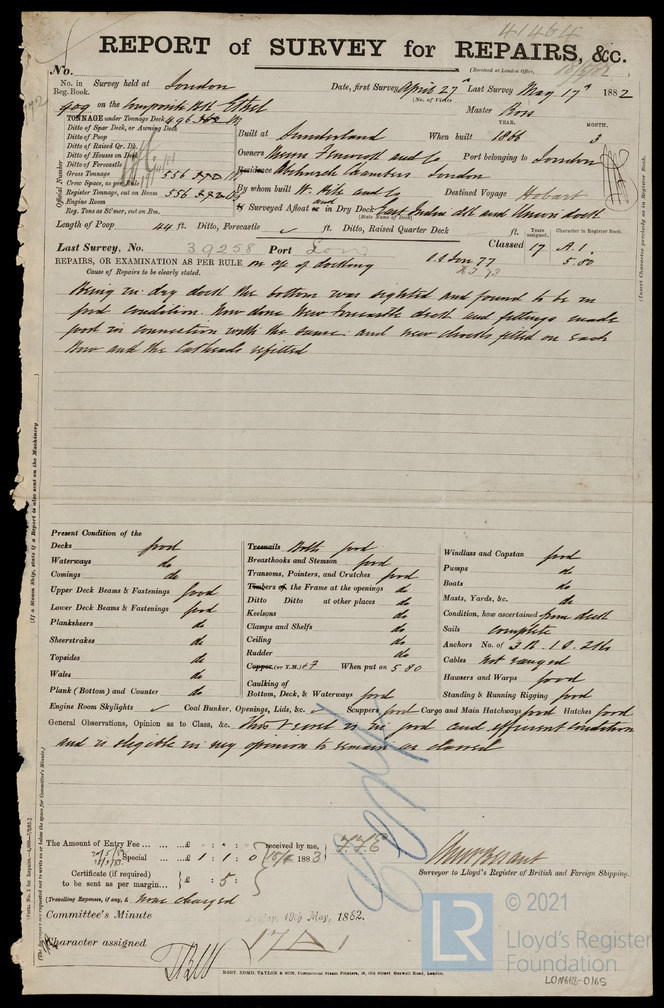 41464
REPORT of SURVEY for REPAIRS, &c.
(Received at London Office, 18/5/82
No.
No. in Reg. Book. Survey held at London Date, first Survey April 27th Last Survey May 17th 1882
(No. of Visits
909 on the Composite Bk Ethel Master Ross
TONNAGE under Tonnage Deck 496
YEAR. MONTH.
Ditto of Spar Deck, or Awning Deck
Ditto of Poop
Built at Sunderland When built 1866 3
Ditto of Raised Qr. Dk.
Ditto of Houses on Deck
Owners Messrs Fenwick and Co Port belonging to London
Ditto of Forecastle
Gross Tonnage 556
Residence Abchurch Chambers London
Crew Space, as per Rule
Register Tonnage, cut on Beam 556
By whom built W. Pile and Co Destined Voyage Hobart
Engine Room
Reg. Tons as St'mer, cut on Bm.
If Surveyed Afloat or and in Dry Dock East India dk and Union dock
(State Name of Dock)
Official Number
Length of Poop 44 ft. Ditto, Forecastle ✓ ft. Ditto, Raised Quarter Deck ft.
Years assigned. Character in Register Book.
Last Survey, No. 39258 Port Lon Classed 17 A.1.
5.80
REPAIRS, OR EXAMINATION AS PER RULE on a/c of docking
Cause of Repairs to be clearly stated.
Being in dry dock the bottom was sighted and found to be in
good condition. Now done New Forecastle deck and fittings made
good in connection with the same: and new chocks fitted on each
Bow and the Catheads refitted
Present Condition of the
Decks good
Waterways do
Comings do
Upper Deck Beams & Fastenings good
Lower Deck Beams & Fastenings good
Planksheers do
Sheerstrakes do
Topsides do
Wales do
Plank (Bottom) and Counter do
Treenails Bolts good
Breasthooks and Stemson good
Transoms, Pointers, and Crutches good
Timbers of the Frame at the openings do
Ditto Ditto at other places do
Keelsons do
Clamps and Shelfs do
Ceiling do
Rudder do
Copper (or Y.M.) When put on 5 80
Caulking of
Bottom, Deck, & Waterways good
Windlass and Capstan good
Pumps do
Boats do
Masts, Yards, &c. do
Condition, how ascertained from deck
Sails complete
Anchors No. of 3 B. 1 S. 2 Ks
Cables Not ranged
Hawsers and Warps good
Standing & Running Rigging good
Engine Room Skylights ✓ Coal Bunker, Openings, Lids, &c. ✓ Scuppers good Cargo and Main Hatchways good Hatches good
General Observations, Opinion as to Class, &c. This vessel is in good and efficient condition
and is eligible in my opinion to remain as classed
The Amount of Entry Fee £ : : received by me,
Special £ 1 : 1 : 0 188
Certificate (if required) to be sent as per margin £ : 5 :
(Travelling Expenses, if any, £ None charged
Surveyor to Lloyd's Register of British and Foreign Shipping.
Committee's Minute Friday, 19th May, 1882.
Character assigned 17 A 1
ROBT. EDMD. TAYLOR & SON, Commercial Steam Printers, 19, Old Street Goswell Road, London.
(If a Steam Ship, state if a Report is also sent on the Machinery
(Insert Character precisely as in Register Book.
(The Surveyors are requested not to write on or below the space for Committee's Minute)
© 2021
LR
Lloyd's Register
Foundation
LON662-0165